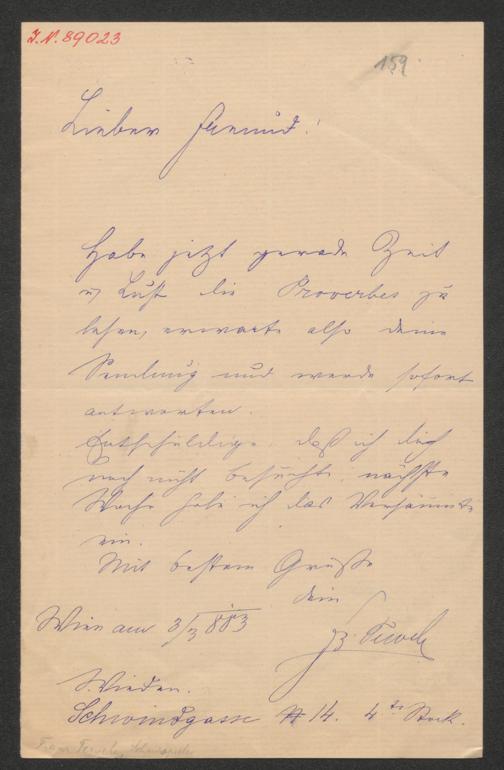 I.N. 89023
159
Lieber Freund!
Habe jetzt gerade Zeit
u. Lust die Proverbes zu
lesen, erwarte also deine
Sendung und werde sofort
antworten.
Entschuldige, daß ich dich
noch nicht besuchte, nächste
Woche hole ich das Versäumte
ein.
Mit bestem Gruße
dein
Wien am 3/3 883
Wieden.
Schwindgasse # 14. 4ter Stock.